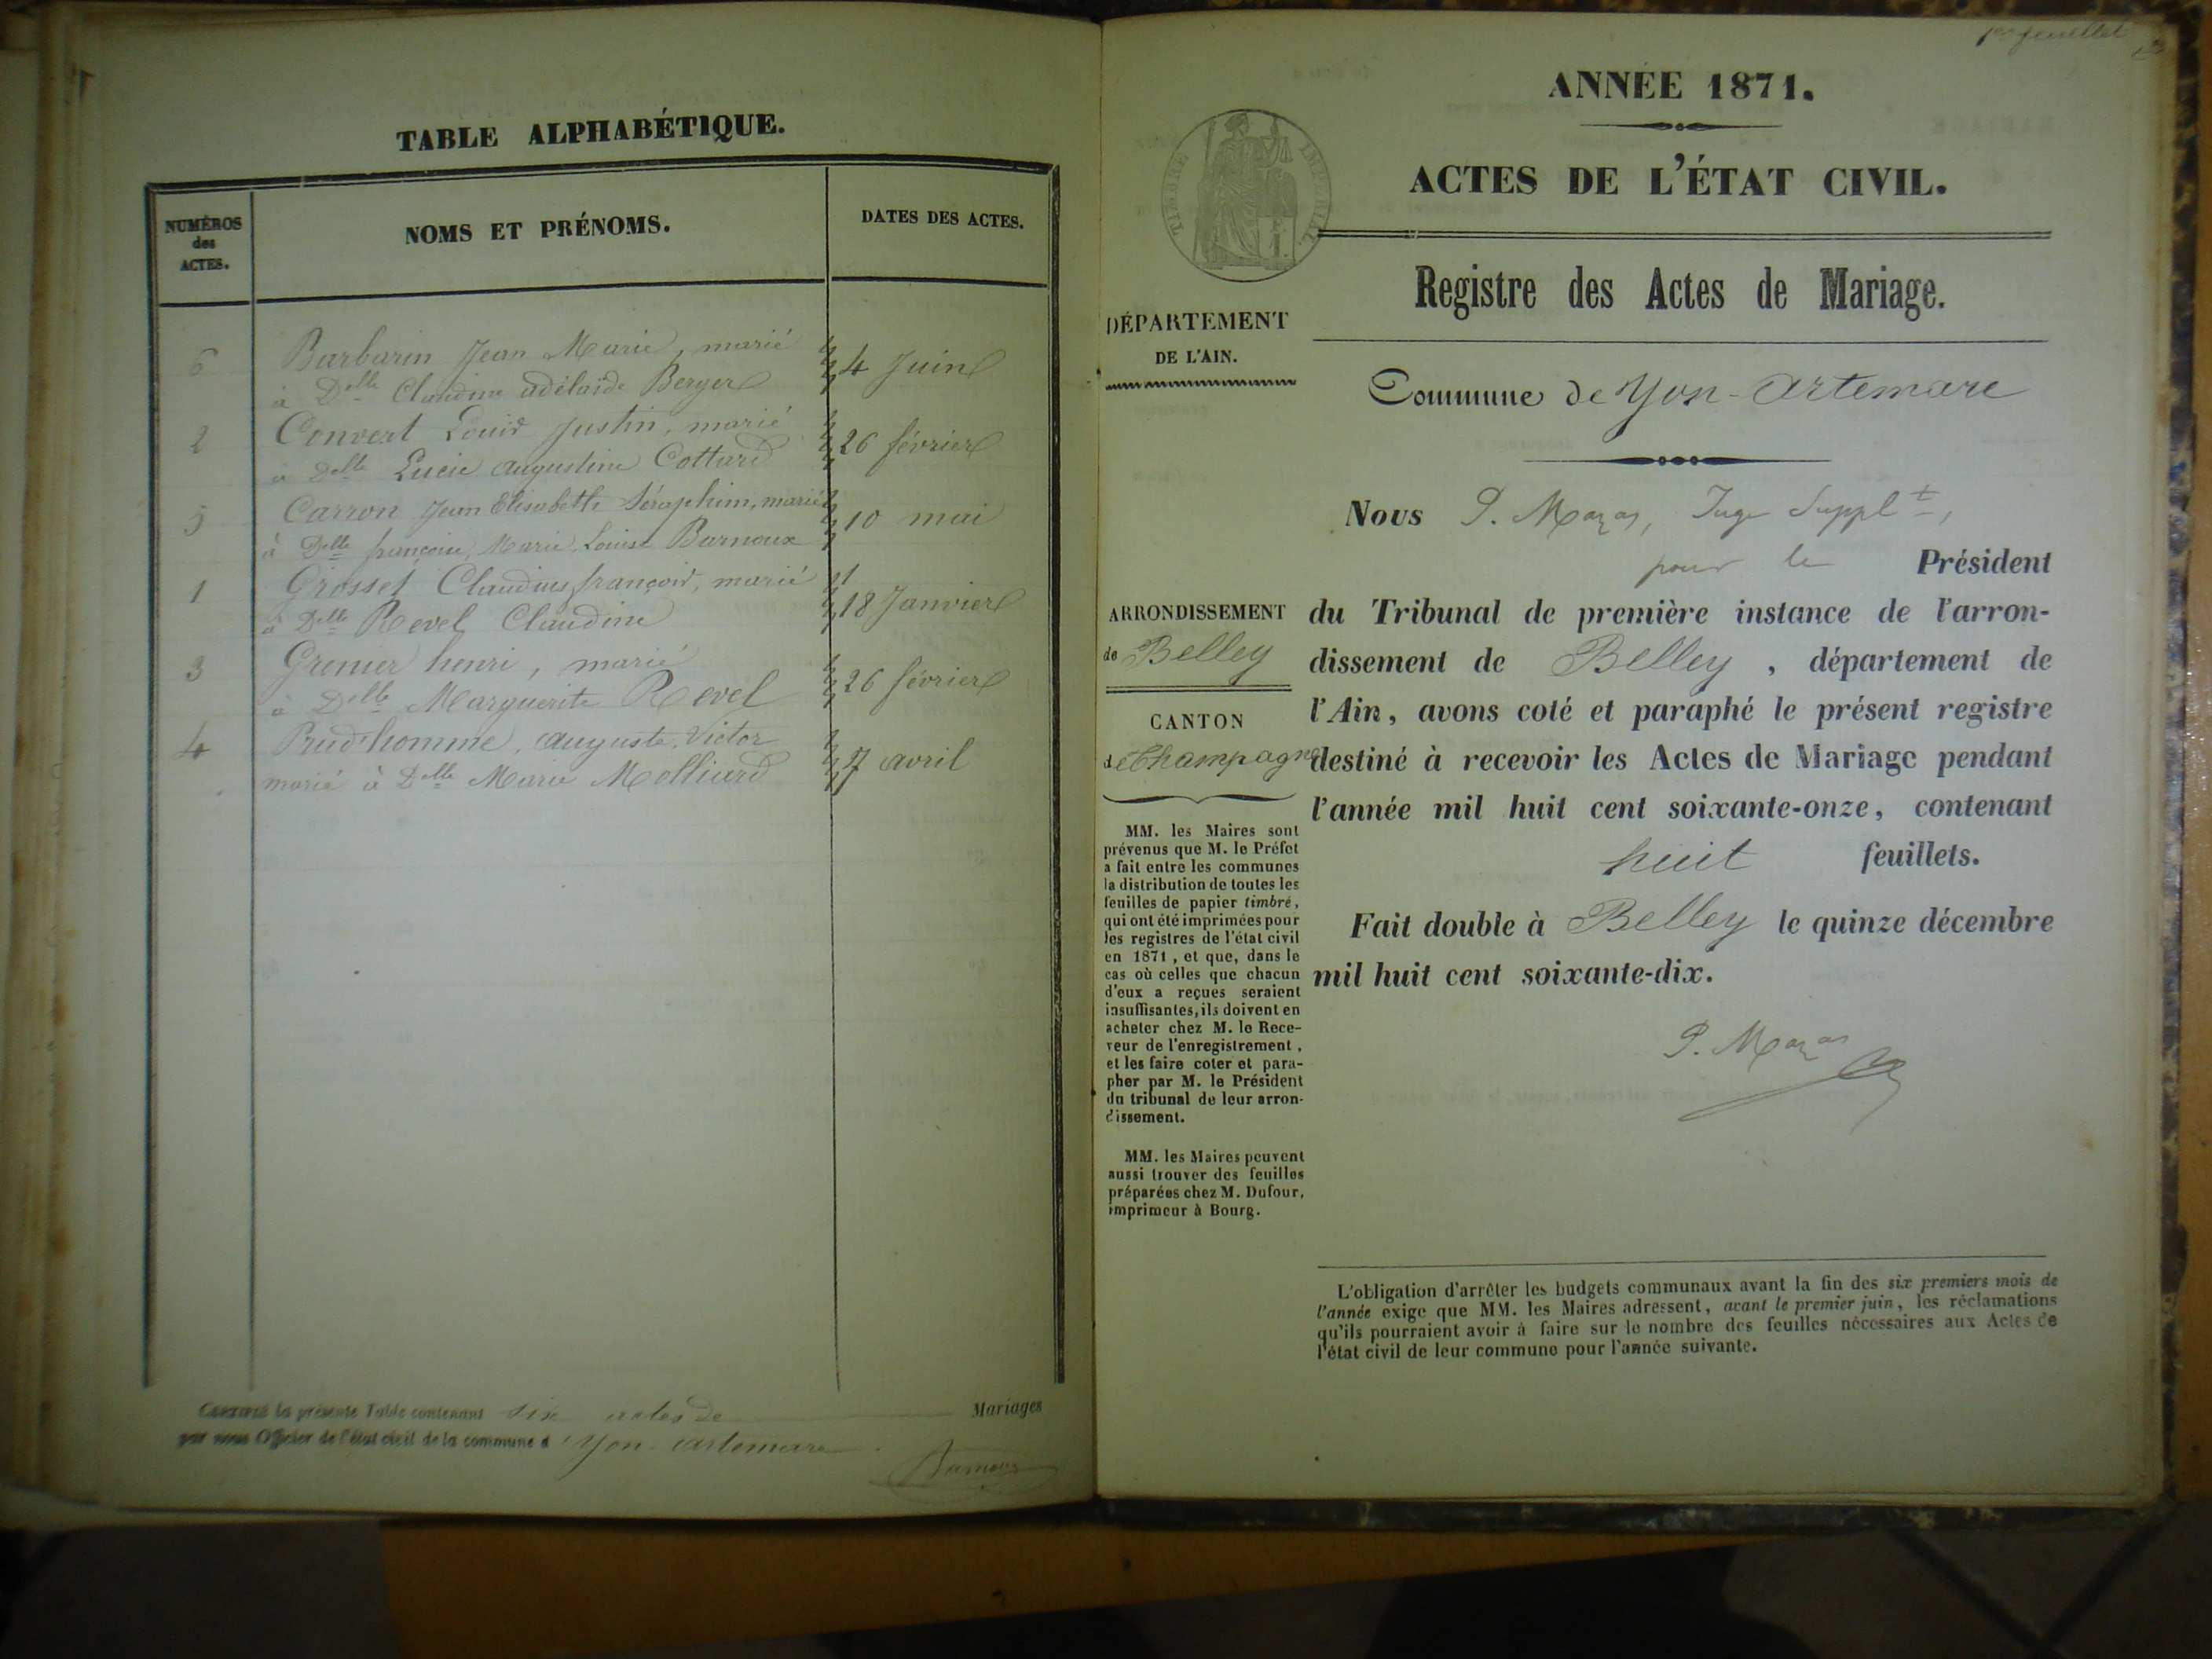 TABLE ALPHABÉTIQUE.
NUMÉROS
des
ACTES.
NOMS ET PRÉNOMS.
DATES DES ACTES.
6 Barbarin Jean Marie, marié 4 Juin
à Delle Claudine adélaïde Berger
2 Convert Louis Justin, marié 26 février
à Delle Lucie augustine Cottard
5 Carron Jean Elisabeth Séraphim, marié 10 mai
à Delle françoise, Marie, Louise Burnoux
1 Grosset Claudius françois, marié 18 Janvier
à Delle Revel Claudine
3 Grenier henri, marié 26 février
à Delle Marguerite Revel
4 Prud'homme, auguste, Victor 7 avril
marié à Delle Marie Molliard
CERTIFIÉ la présente Table contenant six actes de Mariages
par nous Officier de l'état civil de la commune d'Yon-artemare
1er feuillet
ANNÉE 1871.
ACTES DE L'ÉTAT CIVIL.
TIMBRE IMPÉRIAL.
Registre des Actes de Mariage.
DÉPARTEMENT
DE L'AIN.
Commune de Yon-Artemare
Nous P. Mazas, Juge Supplt,
pour le Président
ARRONDISSEMENT
de Belley
CANTON
de Champagne
du Tribunal de première instance de l'arron-
dissement de Belley, département de
l'Ain, avons coté et paraphé le présent registre
destiné à recevoir les Actes de Mariage pendant
l'année mil huit cent soixante-onze, contenant
huit feuillets.
Fait double à Belley le quinze décembre
mil huit cent soixante-dix.
P. Mazas
MM. les Maires sont
prévenus que M. le Préfet
a fait entre les communes
la distribution de toutes les
feuilles de papier timbré,
qui ont été imprimées pour
les registres de l'état civil
en 1871, et que, dans le
cas où celles que chacun
d'eux a reçues seraient
insuffisantes, ils doivent en
acheter chez M. le Rece-
veur de l'enregistrement,
et les faire coter et para-
pher par M. le Président
du tribunal de leur arron-
dissement.
MM. les Maires peuvent
aussi trouver des feuilles
préparées chez M. Dufour,
imprimeur à Bourg.
L'obligation d'arrêter les budgets communaux avant la fin des six premiers mois de
l'année exige que MM. les Maires adressent, avant le premier juin, les réclamations
qu'ils pourraient avoir à faire sur le nombre des feuilles nécessaires aux Actes de
l'état civil de leur commune pour l'année suivante.